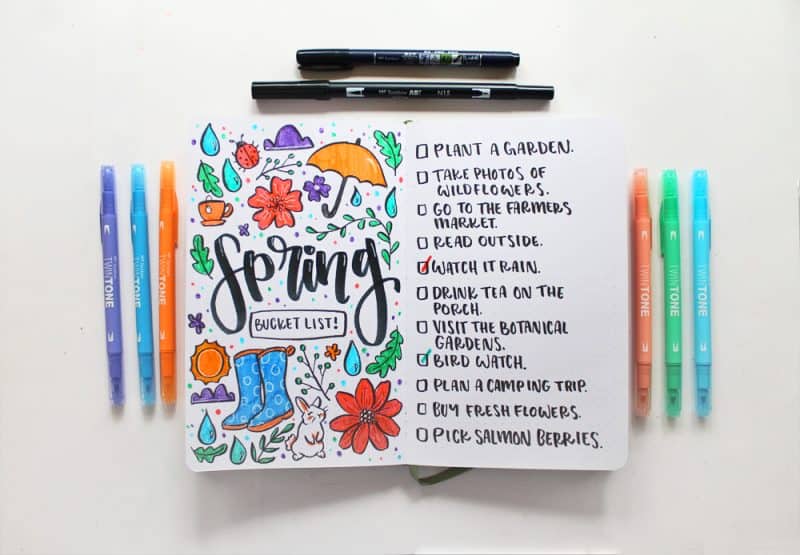 Tombow ABT N15
Spring
BUCKET LIST!
PLANT A GARDEN.
TAKE PHOTOS OF
WILDFLOWERS.
GO TO THE FARMERS
MARKET.
READ OUTSIDE.
WATCH IT RAIN.
DRINK TEA ON THE
PORCH.
VISIT THE BOTANICAL
GARDENS.
BIRD WATCH.
PLAN A CAMPING TRIP.
BUY FRESH FLOWERS.
PICK SALMON BERRIES.
TWINTONE
TWINTONE
TWINTONE
TWINTONE
TWINTONE
TWINTONE